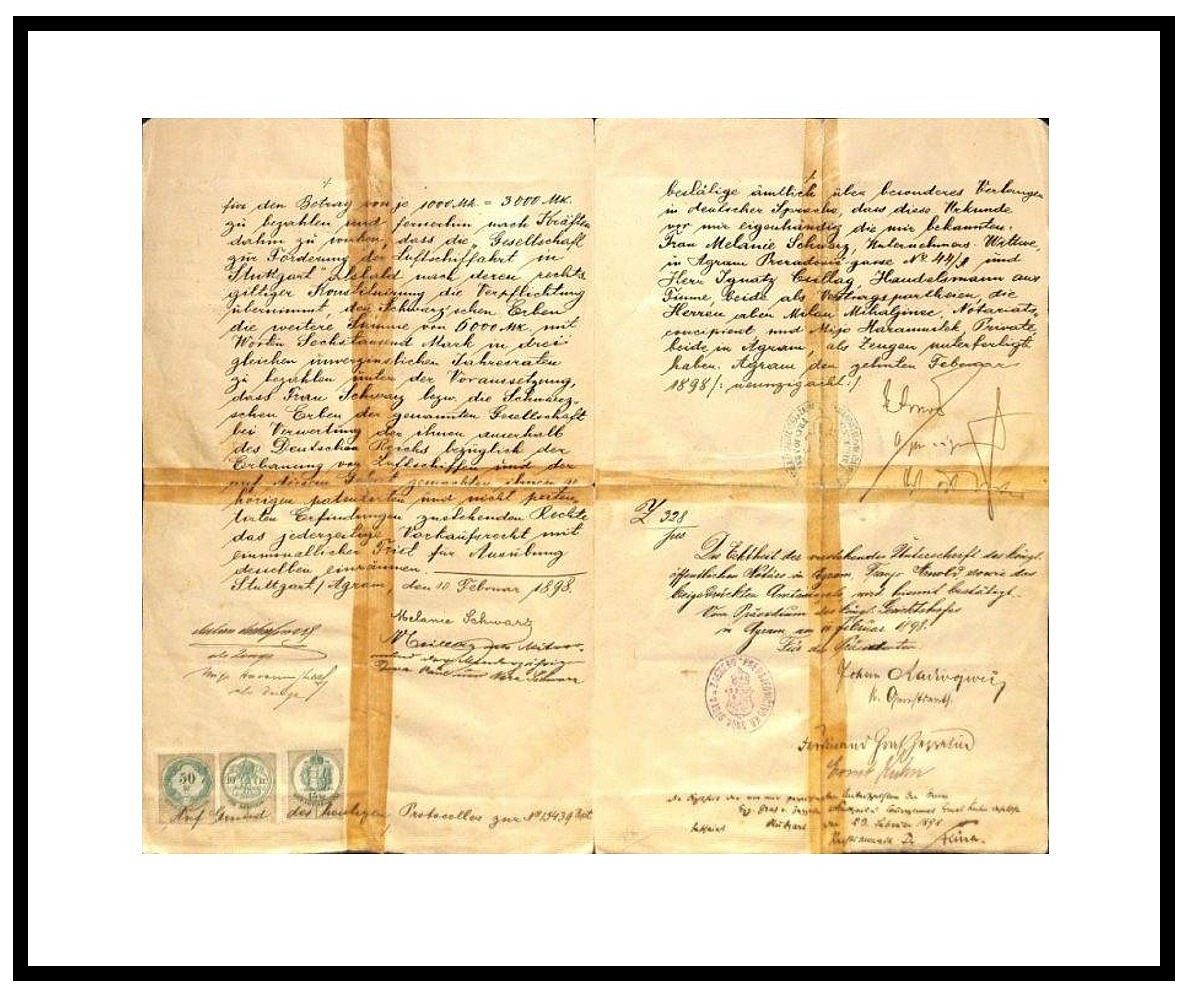 für den Betrag von je 1000 Mk. = 3000 Mk.
zu bezahlen und fernerhin nach Kräften
dahin zu wirken, dass die „Gesellschaft
zur Förderung der Luftschiffahrt in
Stuttgart" alsbald nach deren rechts
giltiger Konstituirung die Verpflichtung
übernimmt, den Schwarz'schen Erben
die weitere Summe von 6000 Mk. mit
Worten Sechstausend Mark in drei
gleichen unverzinslichen Jahresraten
zu bezahlen unter der Voraussetzung,
dass Frau Schwarz bezw. die Schwarz-
schen Erben der genannten Gesellschaft
bei Verwertung der ihnen ausserhalb
des Deutschen Reichs bezüglich der
Erbauung von Luftschiffen und der
auf diesem Gebiet gemachten ihnen ge
hörigen patentirten und nicht paten-
tirten Erfindungen zustehenden Rechte
das jederzeitige Vorkaufsrecht mit
einmonatlicher Frist für Ausübung
desselben einräumen.
Stuttgart / Agram, den 10 Februar 1898.
Melanie Schwarz
als Zeuge
als Zeuge
Vera Schwarz
50
Auf Grund des heutigen Protocolles zur No 15439
bestätige ämtlich über besonderes Verlangen
in deutscher Sprache, dass diese Urkunde
vor mir eigenhändig die mir bekannten:
Frau Melanie Schwarz, Unternehmers-Wittwe,
in Agram Preradović-gasse No 44/I und
Herr Ignatz Csillag, Handelsmann aus
Fiume, beide als Vertragspartheien, die
Herren aber Milan Mihaljinec, Notariats
concipient und Mijo Haramustek, Private
beide in Agram, als Zeugen unterfertigt
haben. Agram den zehnten Februar
1898 /: neunzigacht :/
328
Die Echtheit der vorstehenden Unterschrift des königl.
öffentlichen Notars in Agram, Franjo Arnold sowie des
beigedrückten Amtssiegels wird hiemit bestätigt.
Vom Präsidium des königl. Gerichtshofes
in Agram, am 11 Februar 1898.
Für den Präsidenten
Ferdinand Graf Zeppelin
Ernst Kuhn